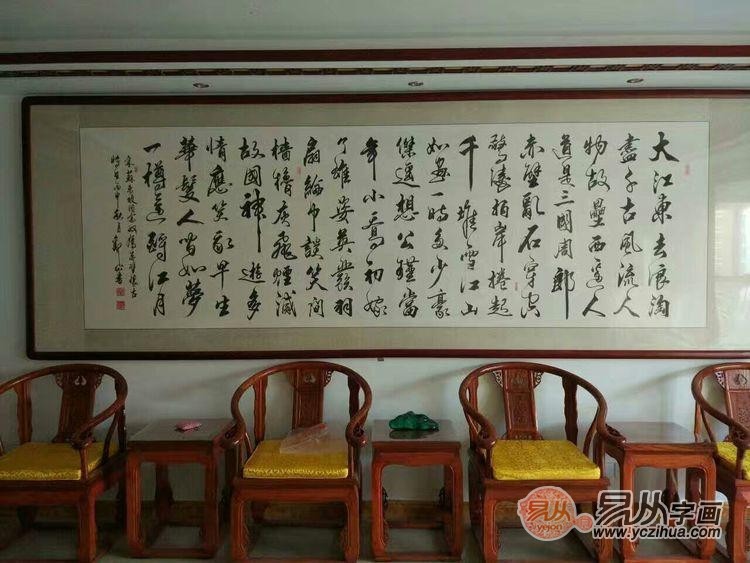 大江東去浪淘
盡千古風流人
物故壘西邊人
道是三國周郎
赤壁亂石穿空
驚濤拍岸捲起
千堆雪江山
如畫一時多少豪
傑遥想公瑾當
年小喬初嫁
了雄姿英發羽
扇綸巾談笑間
檣櫓灰飛煙滅
故國神遊多
情應笑我早生
華髮人間如夢
一樽還酹江月
宋蘇東坡念奴嬌赤壁懷古
時在丙申秋月
易从
易从字画
www.yczihua.com